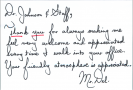 Dr Johnson & Staff,
Thank you for always making me
feel very welcome and appreciated
every time I walk into your office.
Your friendly atmosphere is appreciated.